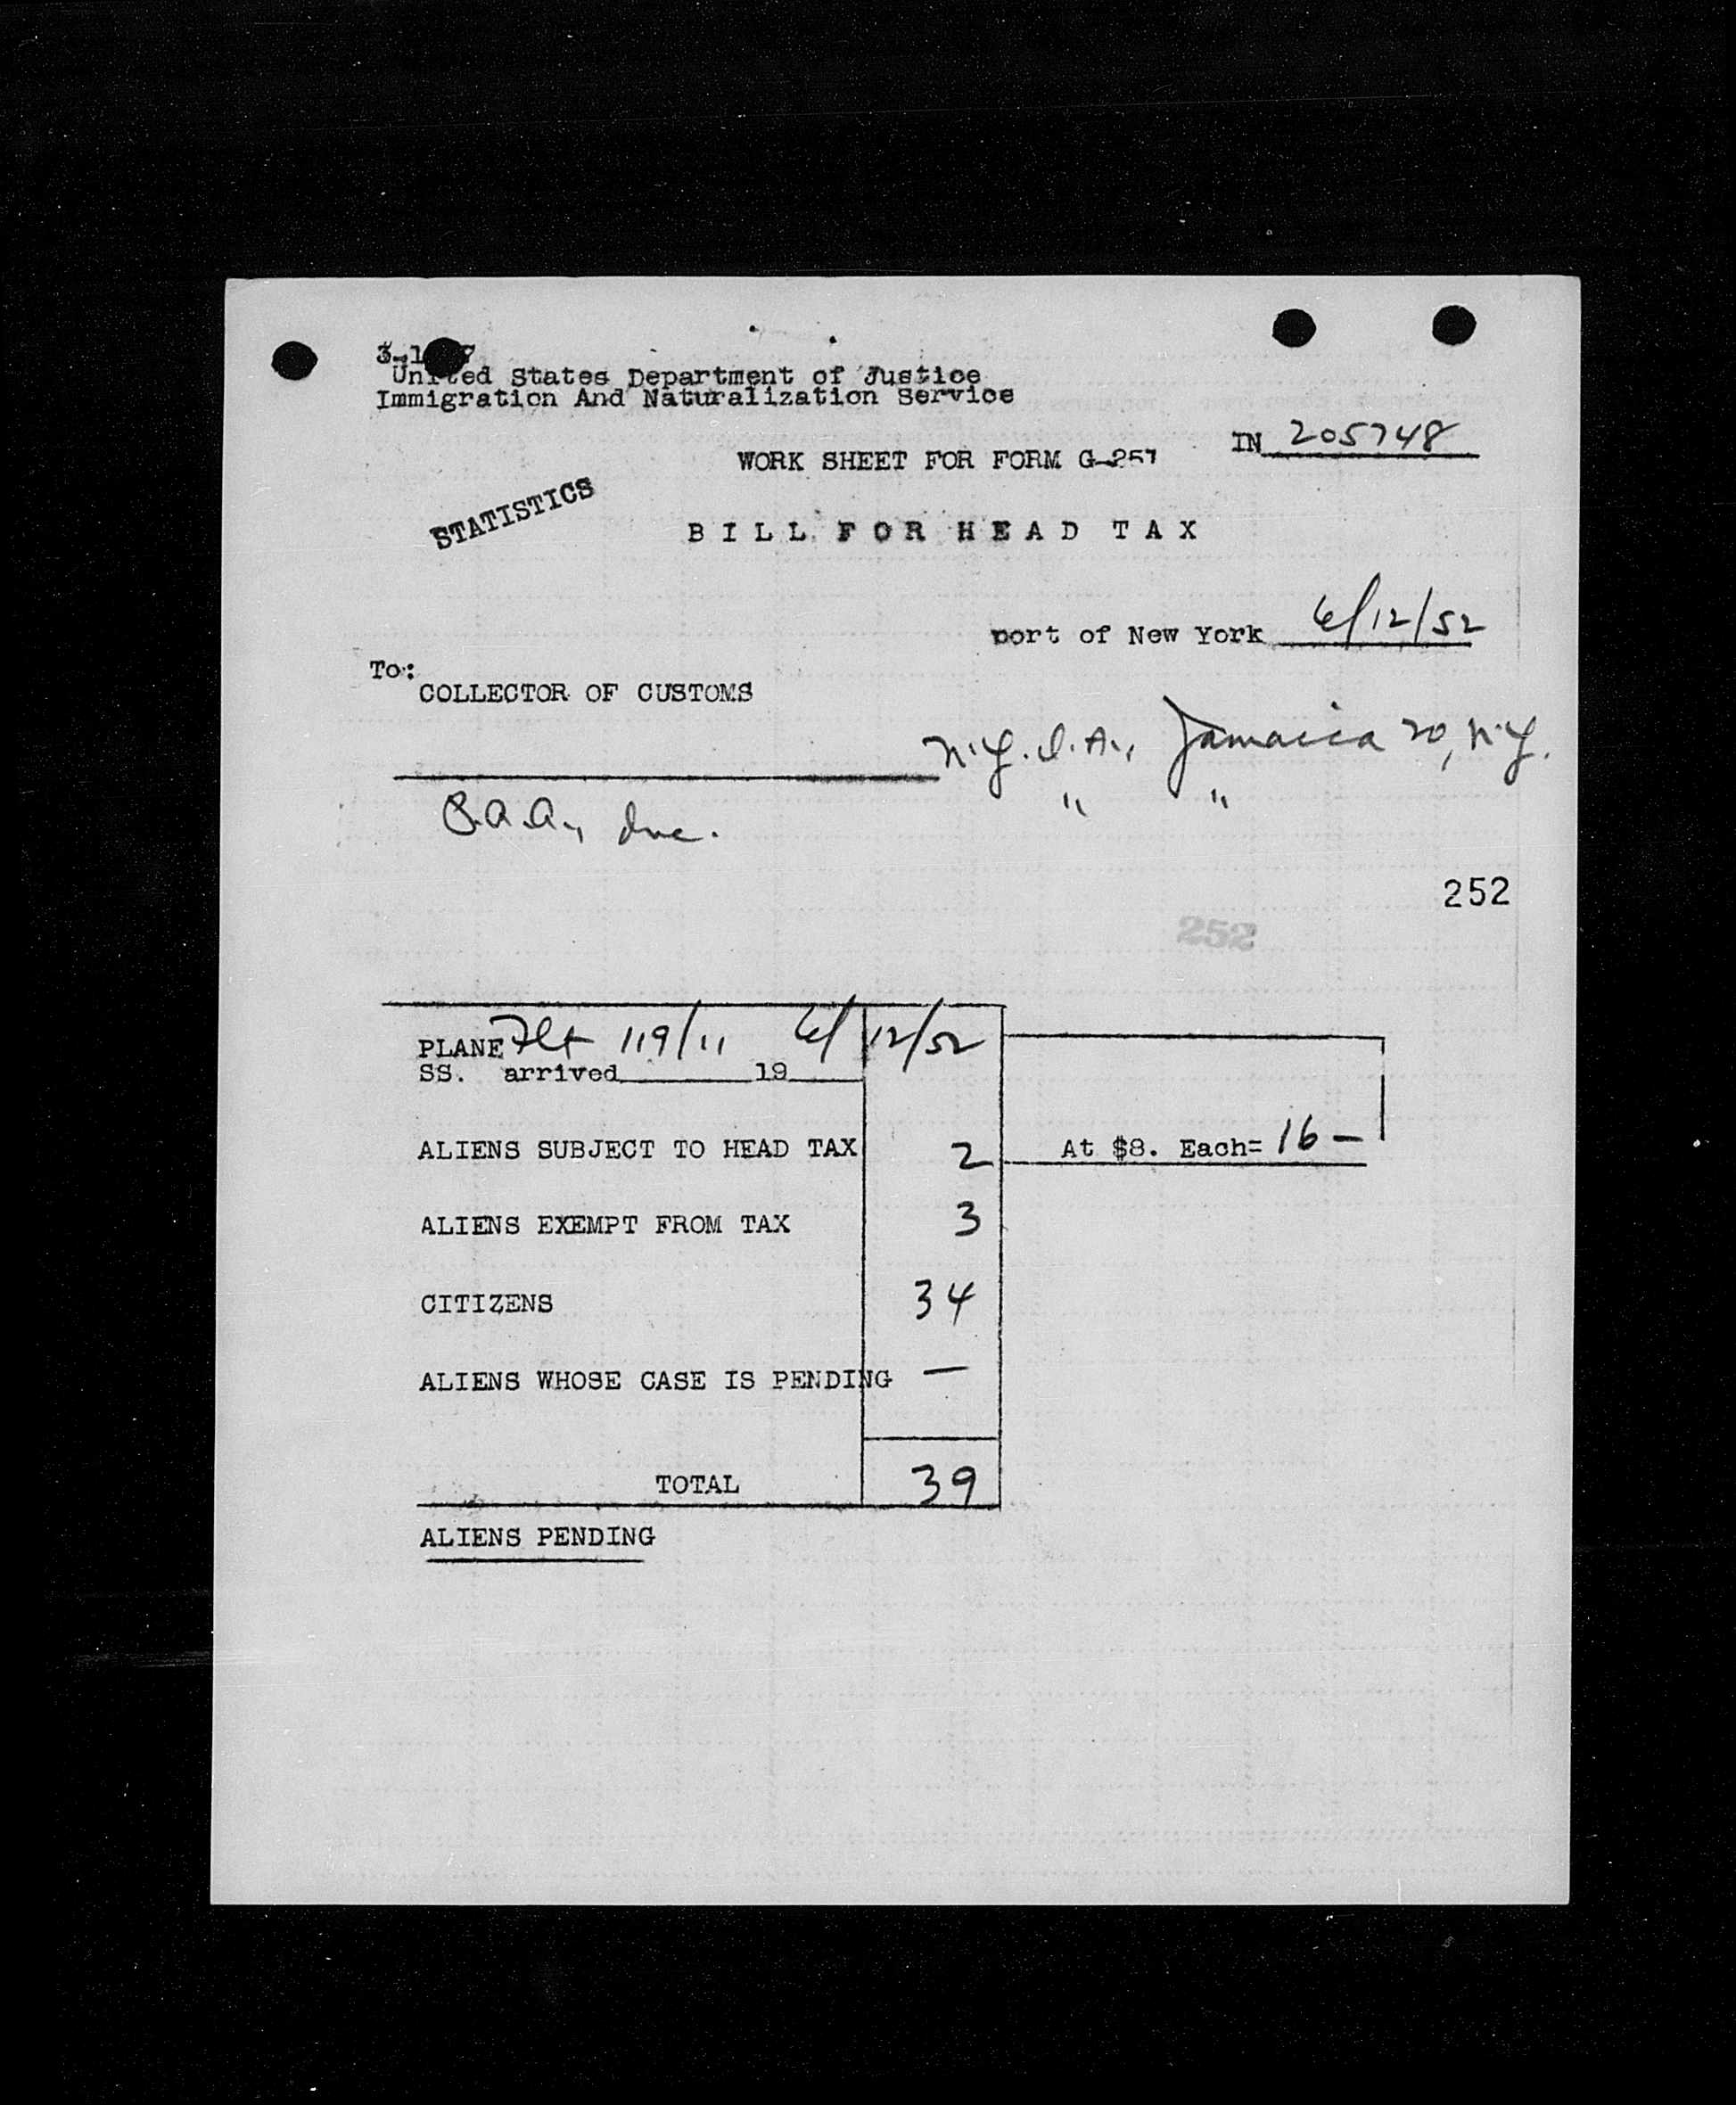 United States Department of Justice
Immigration And Naturalization Service
IN 205748
WORK SHEET FOR FORM G-257
STATISTICS
BILL FOR HEAD TAX
port of New York 6/12/52
To:
COLLECTOR OF CUSTOMS
N.Y. I.A., Jamaica 20, N.Y.
P.A.A., Inc. " "
252
252
PLANE Flt 119/11 6/12/52
SS. arrived 19
ALIENS SUBJECT TO HEAD TAX 2 At $8. Each= 16 —
ALIENS EXEMPT FROM TAX 3
CITIZENS 34
ALIENS WHOSE CASE IS PENDING —
TOTAL 39
ALIENS PENDING